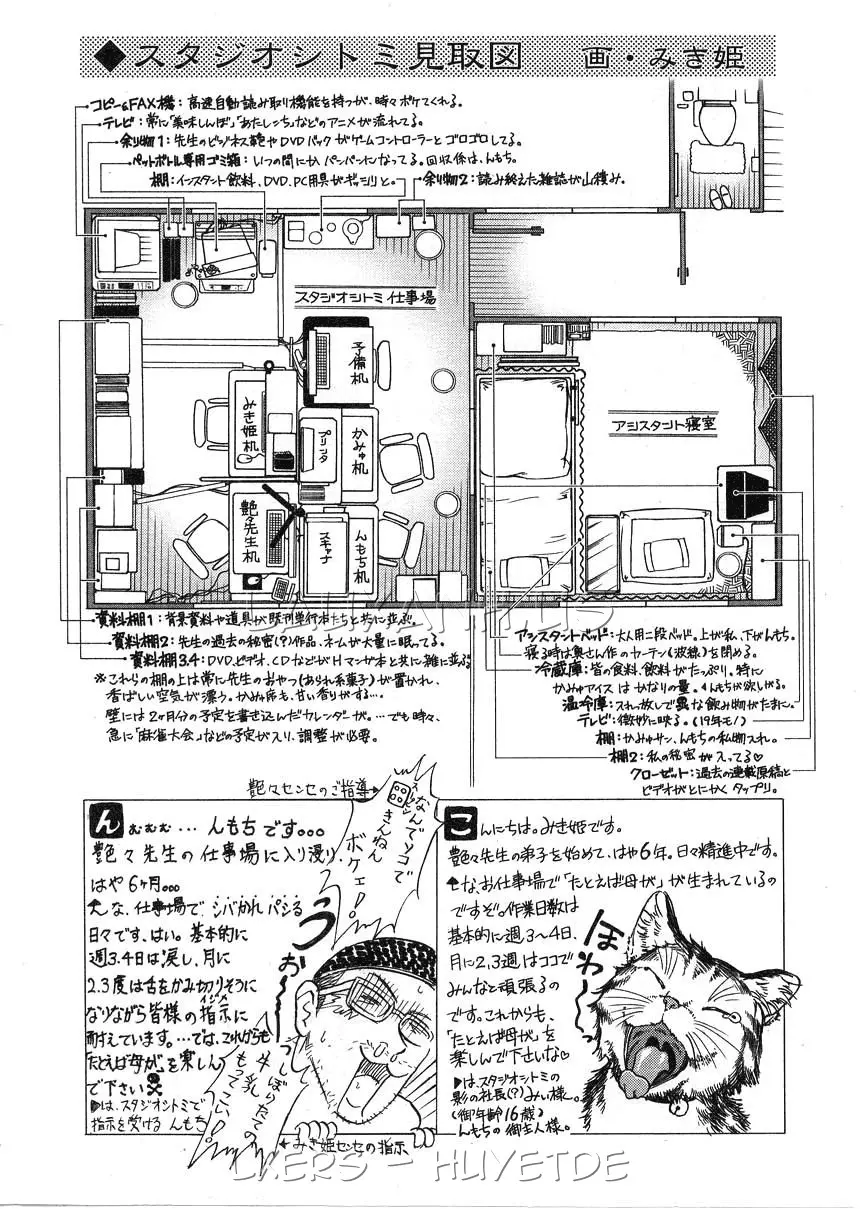 ◆スタジオシトミ見取図　画・みき姫
コピー&FAX機：高速自動読み取り機能を持つが、時々ボケてくれる。
テレビ：常に「美味しんぼ」「あたしンち」などのアニメが流れてる。
余り物1：先生のビジネス鞄やDVDパックがゲームコントローラーとゴロゴロしてる。
ペットボトル専用ゴミ箱：いつの間にかパンパンになってる。回収係は、んもち。
棚：インスタント飲料、DVD、PC用具がギッシリと。
余り物2：読み終えた雑誌が山積み。
スタジオシトミ仕事場
予備机
みき姫机
プリンタ
かみゅ机
艶々先生机
スキャナ
んもち机
アシスタント寝室
資料棚1：背景資料や道具が既刊単行本たちと共に並ぶ。
資料棚2：先生の過去の秘密(?)作品、ネームが大量に眠ってる。
資料棚3.4：DVD、ビデオ、CDなどがHマンガ本と共に雑に並ぶ。
※これらの棚の上は常に先生のおやつ(あられ系菓子)が置かれ、
香ばしい空気が漂う。かみゅ席も、甘い香りがする…。
壁には2ヶ月分の予定を書き込んだカレンダーが。…でも時々、
急に「麻雀大会」などの予定が入り、調整が必要。
アシスタントベッド：大人用二段ベッド。上が私、下がんもち。
寝る時は奥さん作のカーテン(波線)を閉める。
冷蔵庫：皆の食料、飲料がたっぷり。特に
かみゅアイスはかなりの量。んもちが欲しがる。
温冷庫：入れっ放しで異な飲み物がたまに。
テレビ：微妙に映る。(19年モノ)
棚：かみゅサン、んもちの私物入れ。
棚2：私の秘密が入ってる♡
クローゼット：過去の連載原稿と
ビデオがとにかくタップリ。
艶々センセのご指導
なんでソコで
きんねん
ボケェ!
んむむむ…んもちです。。。
艶々先生の仕事場に入り浸り、
はや6ヶ月。。。
んな、仕事場でシバかれパシる
日々です、はい。基本的に
週3.4日は戻し、月に
2.3度は舌をかみ切りそうに
なりながら皆様の指示に
イジメ
耐えています。…では、これからも
「たとえば母が」を楽しん
で下さい☠
▶は、スタジオシトミで
指示を受けるんもち
うおー
しぼりたての
牛乳
もってこい!
←みき姫センセの指示
こんにちは。みき姫です。
艶々先生の弟子を始めて、はや6年。日々精進中です。
な、お仕事場で「たとえば母が」が生まれているの
ですぞ。作業日数は
基本的に週3〜4日、
月に2,3週はココで
みんなと頑張るの
です。これからも、
「たとえば母が」を
楽しんで下さいな♡
▶は、スタジオシトミの
影の社長(?)みぃ様。
(御年齢16歳)
んもちの御主人様。
ほわ〜
LXERS - HUYETDE